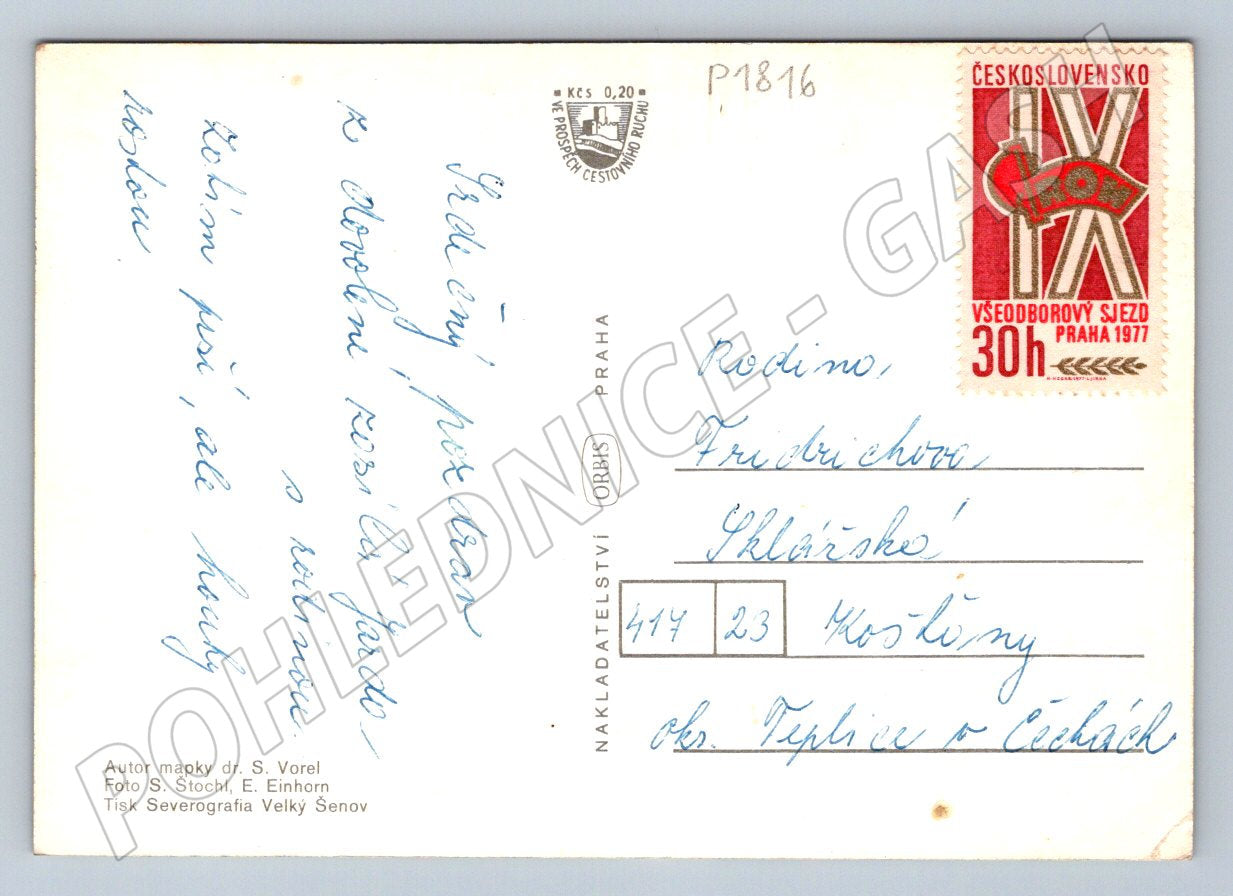 P1816
Kčs 0,20
VE PROSPĚCH CESTOVNÍHO RUCHU
ČESKOSLOVENSKO
IX
ROH
VŠEODBOROVÝ SJEZD
PRAHA 1977
30h
Srdečný pozdrav
z dovolené zasílá Jarda
s rodinou.
Zatím prší, ale houby
rostou.
NAKLADATELSTVÍ ORBIS PRAHA
Rodina
Fridrichova
Sklářská
417 23 Košťany
okr. Teplice v Čechách
Autor mapky dr. S. Vorel
Foto S. Štochl, E. Einhorn
Tisk Severografia Velký Šenov
POHLEDNICE - GASH